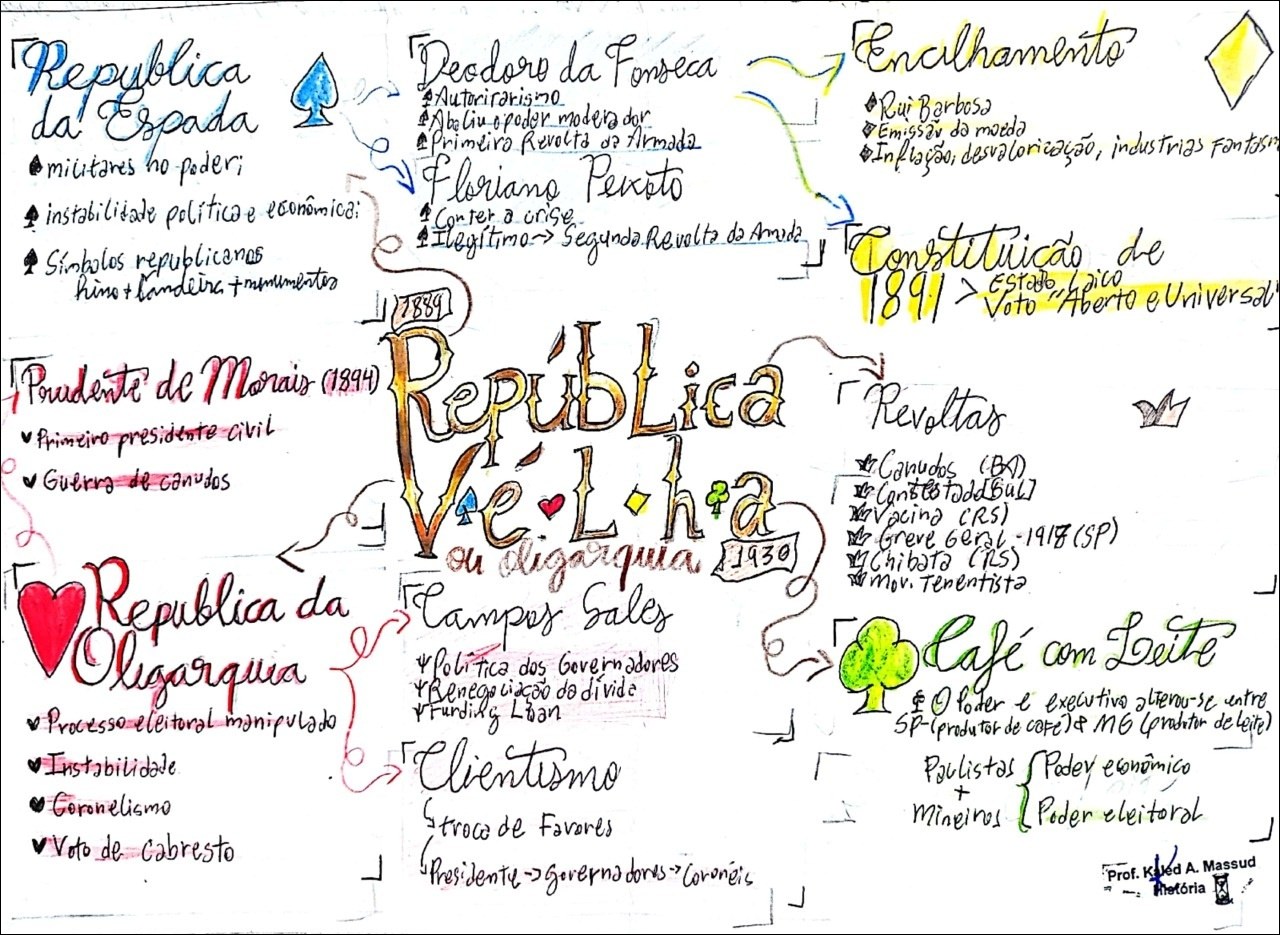 Republica
da Espada
militares no poder;
instabilidade política e econômica;
Símbolos republicanos
hino + bandeira + monumentos
Deodoro da Fonseca
Autoritarismo
Aboliu o poder moderador
Primeira Revolta da Armada
Floriano Peixoto
Conter a crise
Ilegítimo -> Segunda Revolta da Armada
Encilhamento
Rui Barbosa
Emissão da moeda
Inflação, desvalorização, industrias Fantasm
Constituição de
1891 > Estado Laico
Voto "Aberto e Universal"
1889
República
Vélha
ou oligarquia
1930
Prudente de Morais (1894)
Primeiro presidente civil
Guerra de canudos
Revoltas
Canudos (BA)
Contestado [SUL]
Vacina (RS)
Greve Geral - 1918 (SP)
Chibata (RS)
Mov. Tenentista
Republica da
Oligarquia
Processo eleitoral manipulado
Instabilidade
Coronelismo
Voto de cabresto
Campos Sales
Política dos Governadores
Renegociação da dívida
Funding Loan
Clientismo
troca de Favores
Presidente -> governadores -> Coronéis
Café com Leite
O Poder e executivo alterou-se entre
SP-(produtor de café) & MG (produtor de leite)
Paulistas
+
Mineiros
Poder econômico
Poder eleitoral
Prof. Kaled A. Massud
História